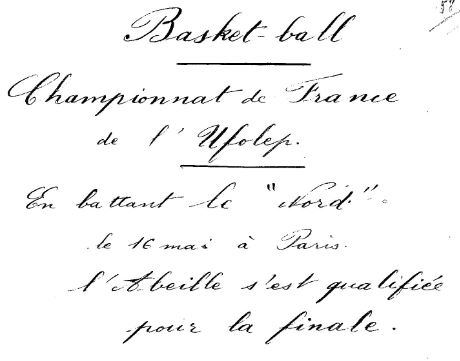 58
Basket-ball
Championnat de France
de l'Ufolep.
En battant le "Nord".
le 16 mai à Paris.
l'Abeille s'est qualifiée
pour la finale.